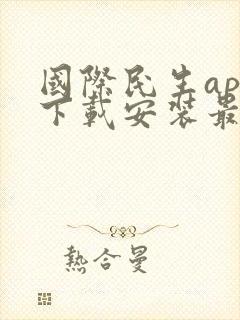 國際民生ap
下載安裝最
熱合曼